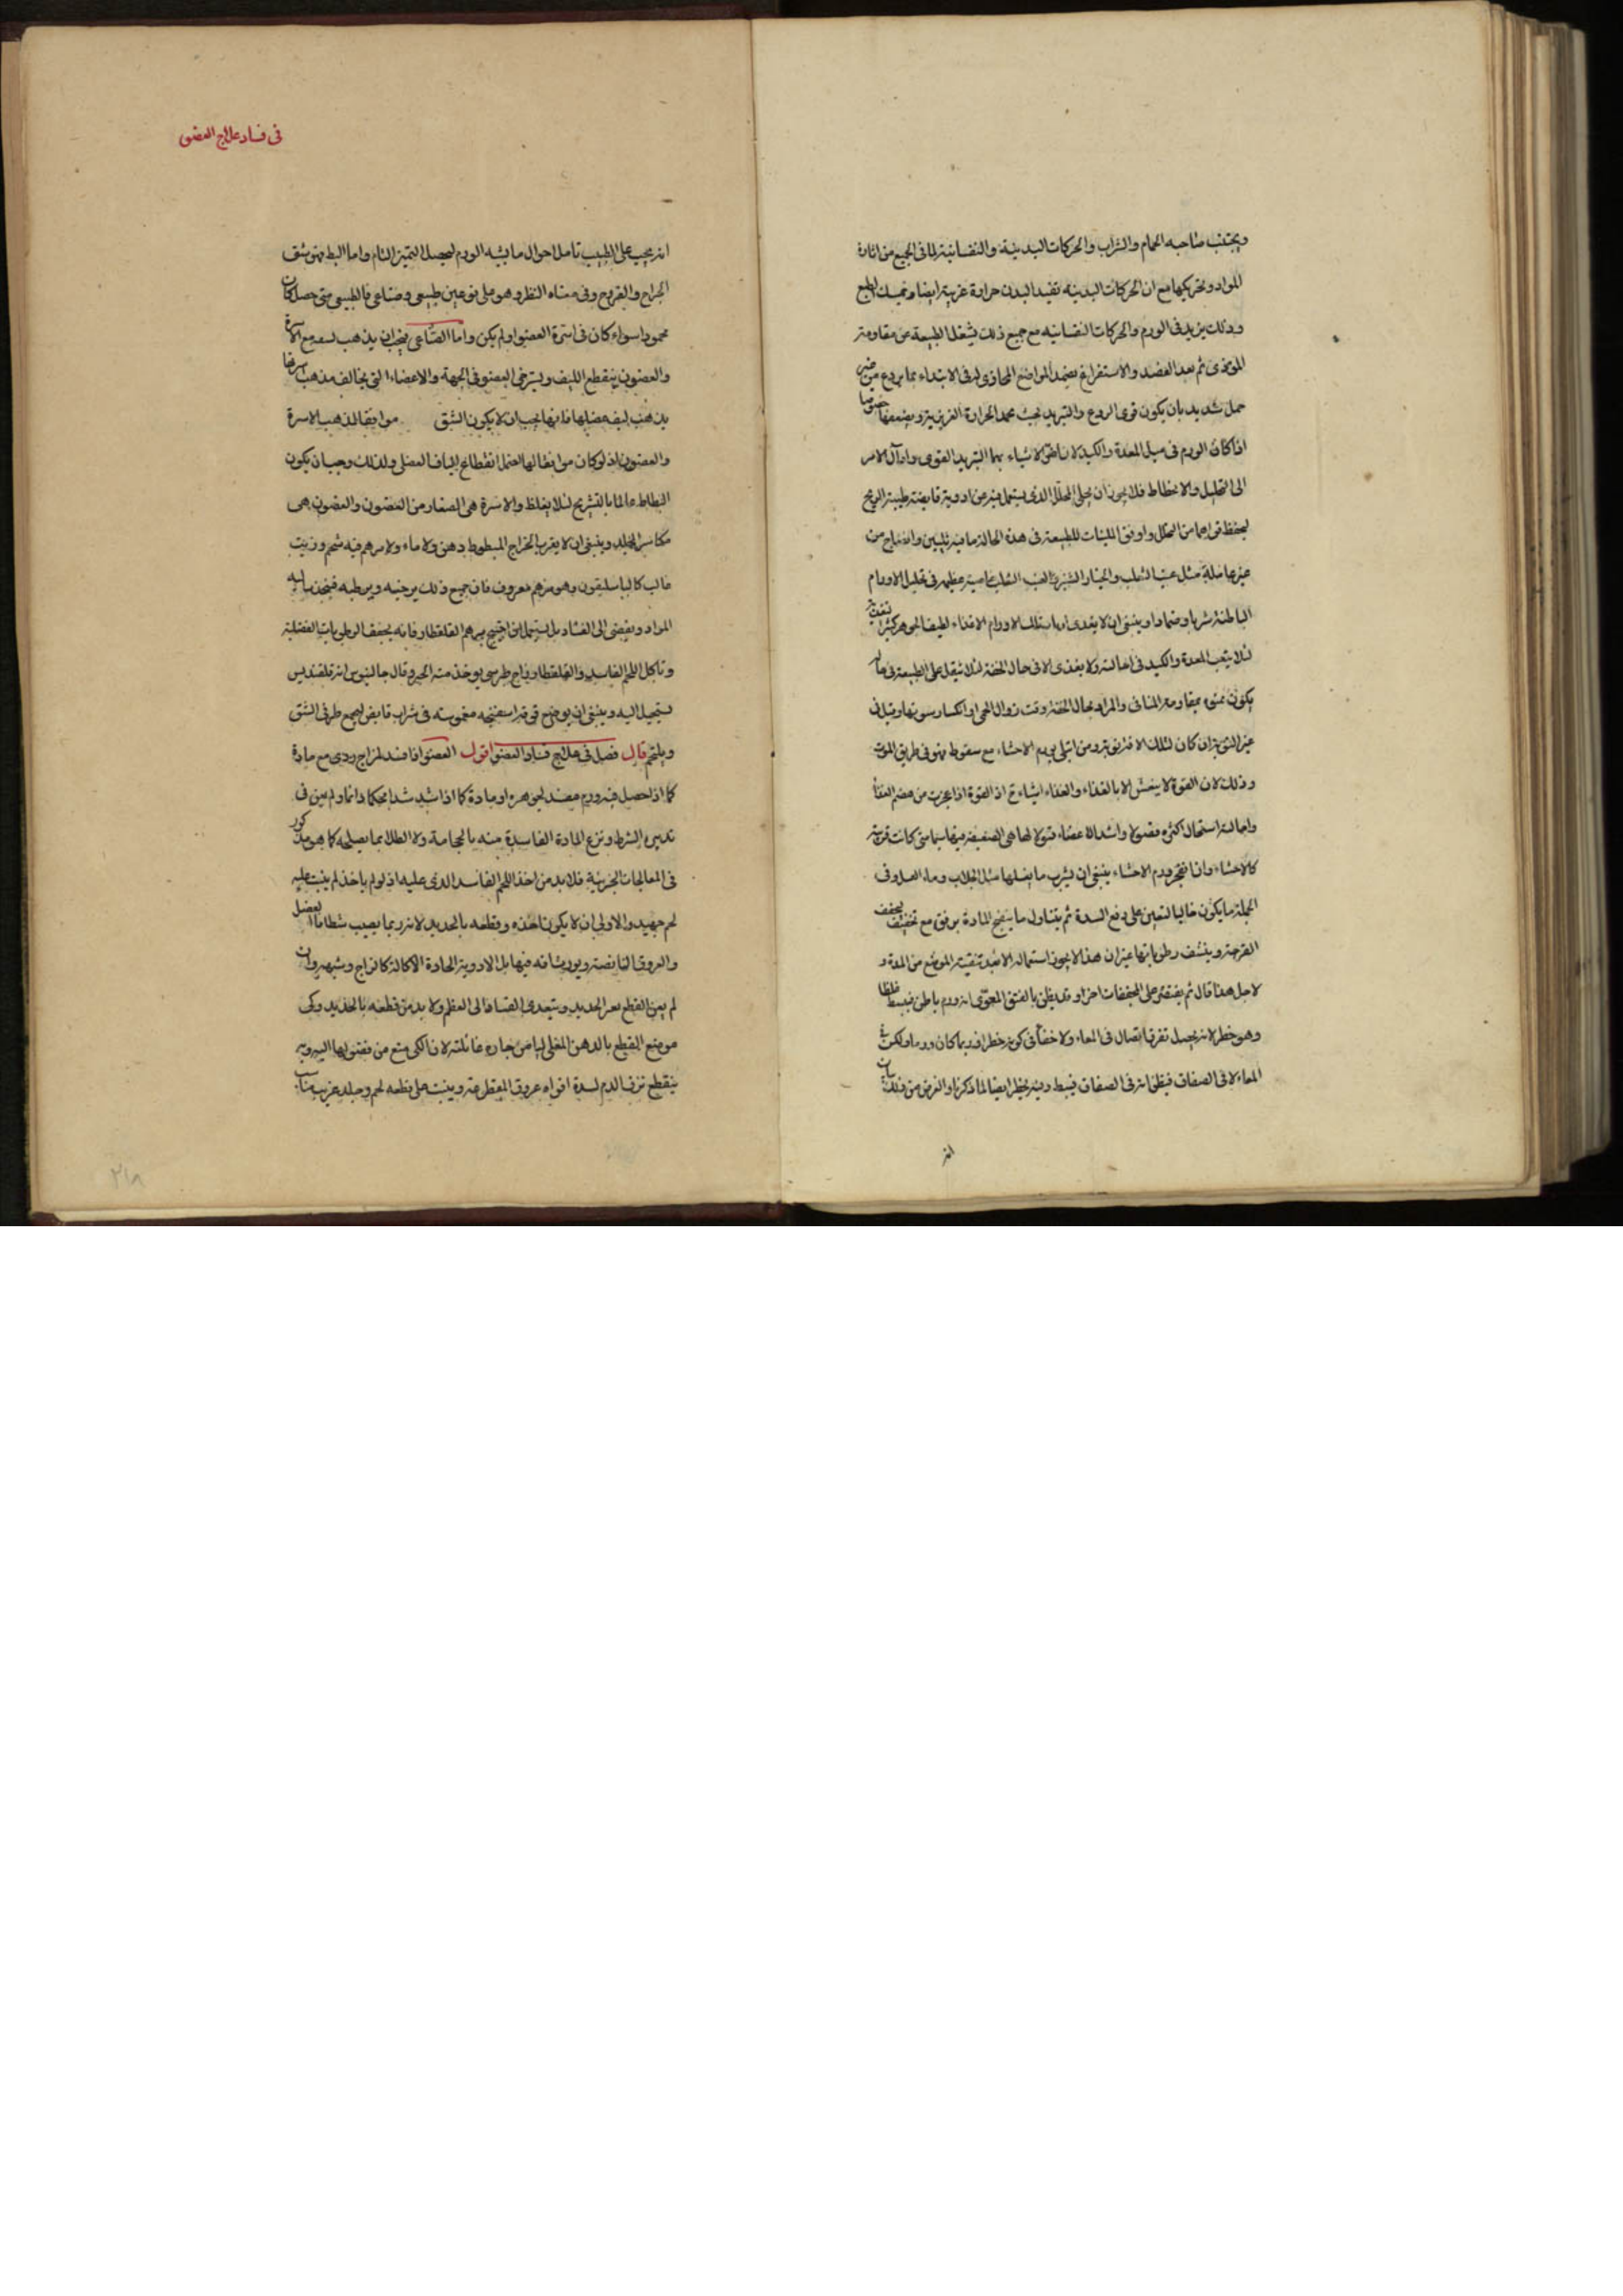 ويجتنب صاحبه الحمام والشراب والحركات البدنية والنفسانية لما في الجميع من اثارة
المواد وتحريكها مع ان الحركات البدنية تفيد البدن حرارة غريبة ايضا
وذلك يزيد في الورم والحركات النفسانيه مع جميع ذلك يشغل الطبيعة عن مقاومة
الموذى ثم بعد الفصد والاستفراغ يضمد المواضع المحاذى له في الابتداء بما يردع من غير
حمل شديد بان يكون قوى الردع والتبريد بحيث يجمد الحرارة الغريزية ويضعفها خصوصا
اذا كان الورم في مثل المعدة والكبد لانه اضر الاشياء بهما التبريد القوى واذا آل الامر
الى التحليل والانحطاط فلا يجوز ان يخلى المحلل الذى يستعمل فيه من ادوية قابضة طيبة الريح
ليحفظ قواهما من التحلل واوفق الملينات للطبيعة في هذه الحالة ما فيه تليين وانضاج من
مثل عنب الثعلب والخيار الشنبر ولعنب الثعلب خاصية عظيمة في تحليل الاورام
الباطنة شربا وضمادا وينبغى ان لا يغذى ارباب تلك الاورام الا غذاء لطيف الجوهر
لئلا يتعب المعدة والكبد في احالته ولا يغذى الا في حال الخفة لئلا يثقل على الطبيعة في حال
يكون بمقاومة المنافى والمراد بحال الخفة وقت زوال الحمى او انكسار سورتها
غير النوبة ان كان لتلك الافة نوبة ومن ابتلى بورم الاحشاء مع سقوط فهو في طريق الموت
وذلك لان القوة لا ينتعش الا بالغذاء والغذاء اذ القوة اذا عجزت من هضم الغذاء
واحالته استحال اكثره فضولا واشد الاعضاء قبولا لها هى الضعيفة سيما متى كانت قريبة
كالاحشاء واذا انفجر ورم الاحشاء ينبغى ان يشرب ما يغسلها مثل الجلاب وماء العسل وفى
الجملة ما يكون جاليا لتعين على دفع السدة ثم يتناول ما ينضج المادة برفق مع تجفيف يجفف
القرحة وينشف رطوباتها غير ان هذا لا يجوز استعماله الا بعد تنقية الموضع من المدة و
لاجل هذا قال ثم يقتصر على المجففات اخرا وقد يظن بالفتق المعوى انه ورم باطن فيبط غلطا
وهو خطر لانه يحصل تفرق اتصال في المعاء ولا خفأ في كونه خطرا وربما كان ورما ولكن في
المعاء لا في الصفاق فيظن انه في الصفاق فيبط وفيه خطر ايضا لما ذكرنا والغرض من ذلك بيان
انه
في فساد علاج العضو
انه يجب على الطبيب تامل احوال ما يشبه الورم ليحصل التميز التام واما البط فهو شق
الجراح والقروح وفى معناه النظر وهو على نوعين طبيعى وصناعى فالطبيعى متى حصل كان
محمودا سواء كان في اسرة العضو او لم يكن واما الصناعى فيجب ان يذهب به مع الاسرة
والغضون ينقطع الليف ويسترخى العضو في الجهة والاعضاء التى يخالف مذهب اسرتها
مذهب ليف عضلها فانها يجب ان لا يكون الشق موافقا لمذهب الاسرة
والغضون اذ لو كان موافقا لها لعمل انقطاع الياف العضل ولذلك وجب ان يكون
البطاط عالما بالتشريح لئلا يغلط والاسرة هى الصغار من الغضون والغضون هى
مكاسر الجلد وينبغى ان لا يقرب الجراح المبطوط دهن ولا ماء ولا مرهم فيه شحم وزيت
غالب كالباسليقون وهو مرهم معروف فان جميع ذلك يرخيه ويرطبه فينجذب اليه
المواد ويفضى الى الفساد بل يستعمل ان احتيج مرهم القلقطار فانه يجفف الرطوبات الفضلية
وتاكل اللحم الفاسد والقلقطار زاج طرسى يوخذ منه الحبر وقال جالينوس انه قلقنديس
يستحيل اليه وينبغى ان يوضع فوقه اسفنجه مغموسة في شراب قابض ليجمع طرفى الشق
ويلتحم قال فصل في علاج فساد العضو اقول العضو اذا فسد لمزاج ردى مع مادة
كما اذا حصل فيه ورم مفسد لجوهره او مادة كما اذا شد شدا محكما دائما ولم يعن في
تدبيره الشرط ونزع المادة الفاسدة منه بالحجامة ولا الطلا بما يصلحه كما هو مذكور
في المعالجات الجزئية فلا بد من اخذ اللحم الفاسد الذى عليه اذ لو لم ياخذ لم ينبت عليه
لحم جيد والاولى ان لا يكون اخذه وقطعه بالحديد لانه ربما يصيب شظايا العضل
والعروق النابضة ويورث افة فيها بل الادوية الحادة الاكالة كالزاج وشبهه وان
لم يعن القطع بغير الحديد ويتعدى الفساد الى العظم ولا بد من قطعه بالحديد وكى
موضع القطع بالدهن المغلى ليامن غائلته لان الكى منع من فضولها
ينقطع نزف الدم لسدة افواه عروق المقطع عنه وينبت على قطعه لحم وجلد غريب
٢١٨